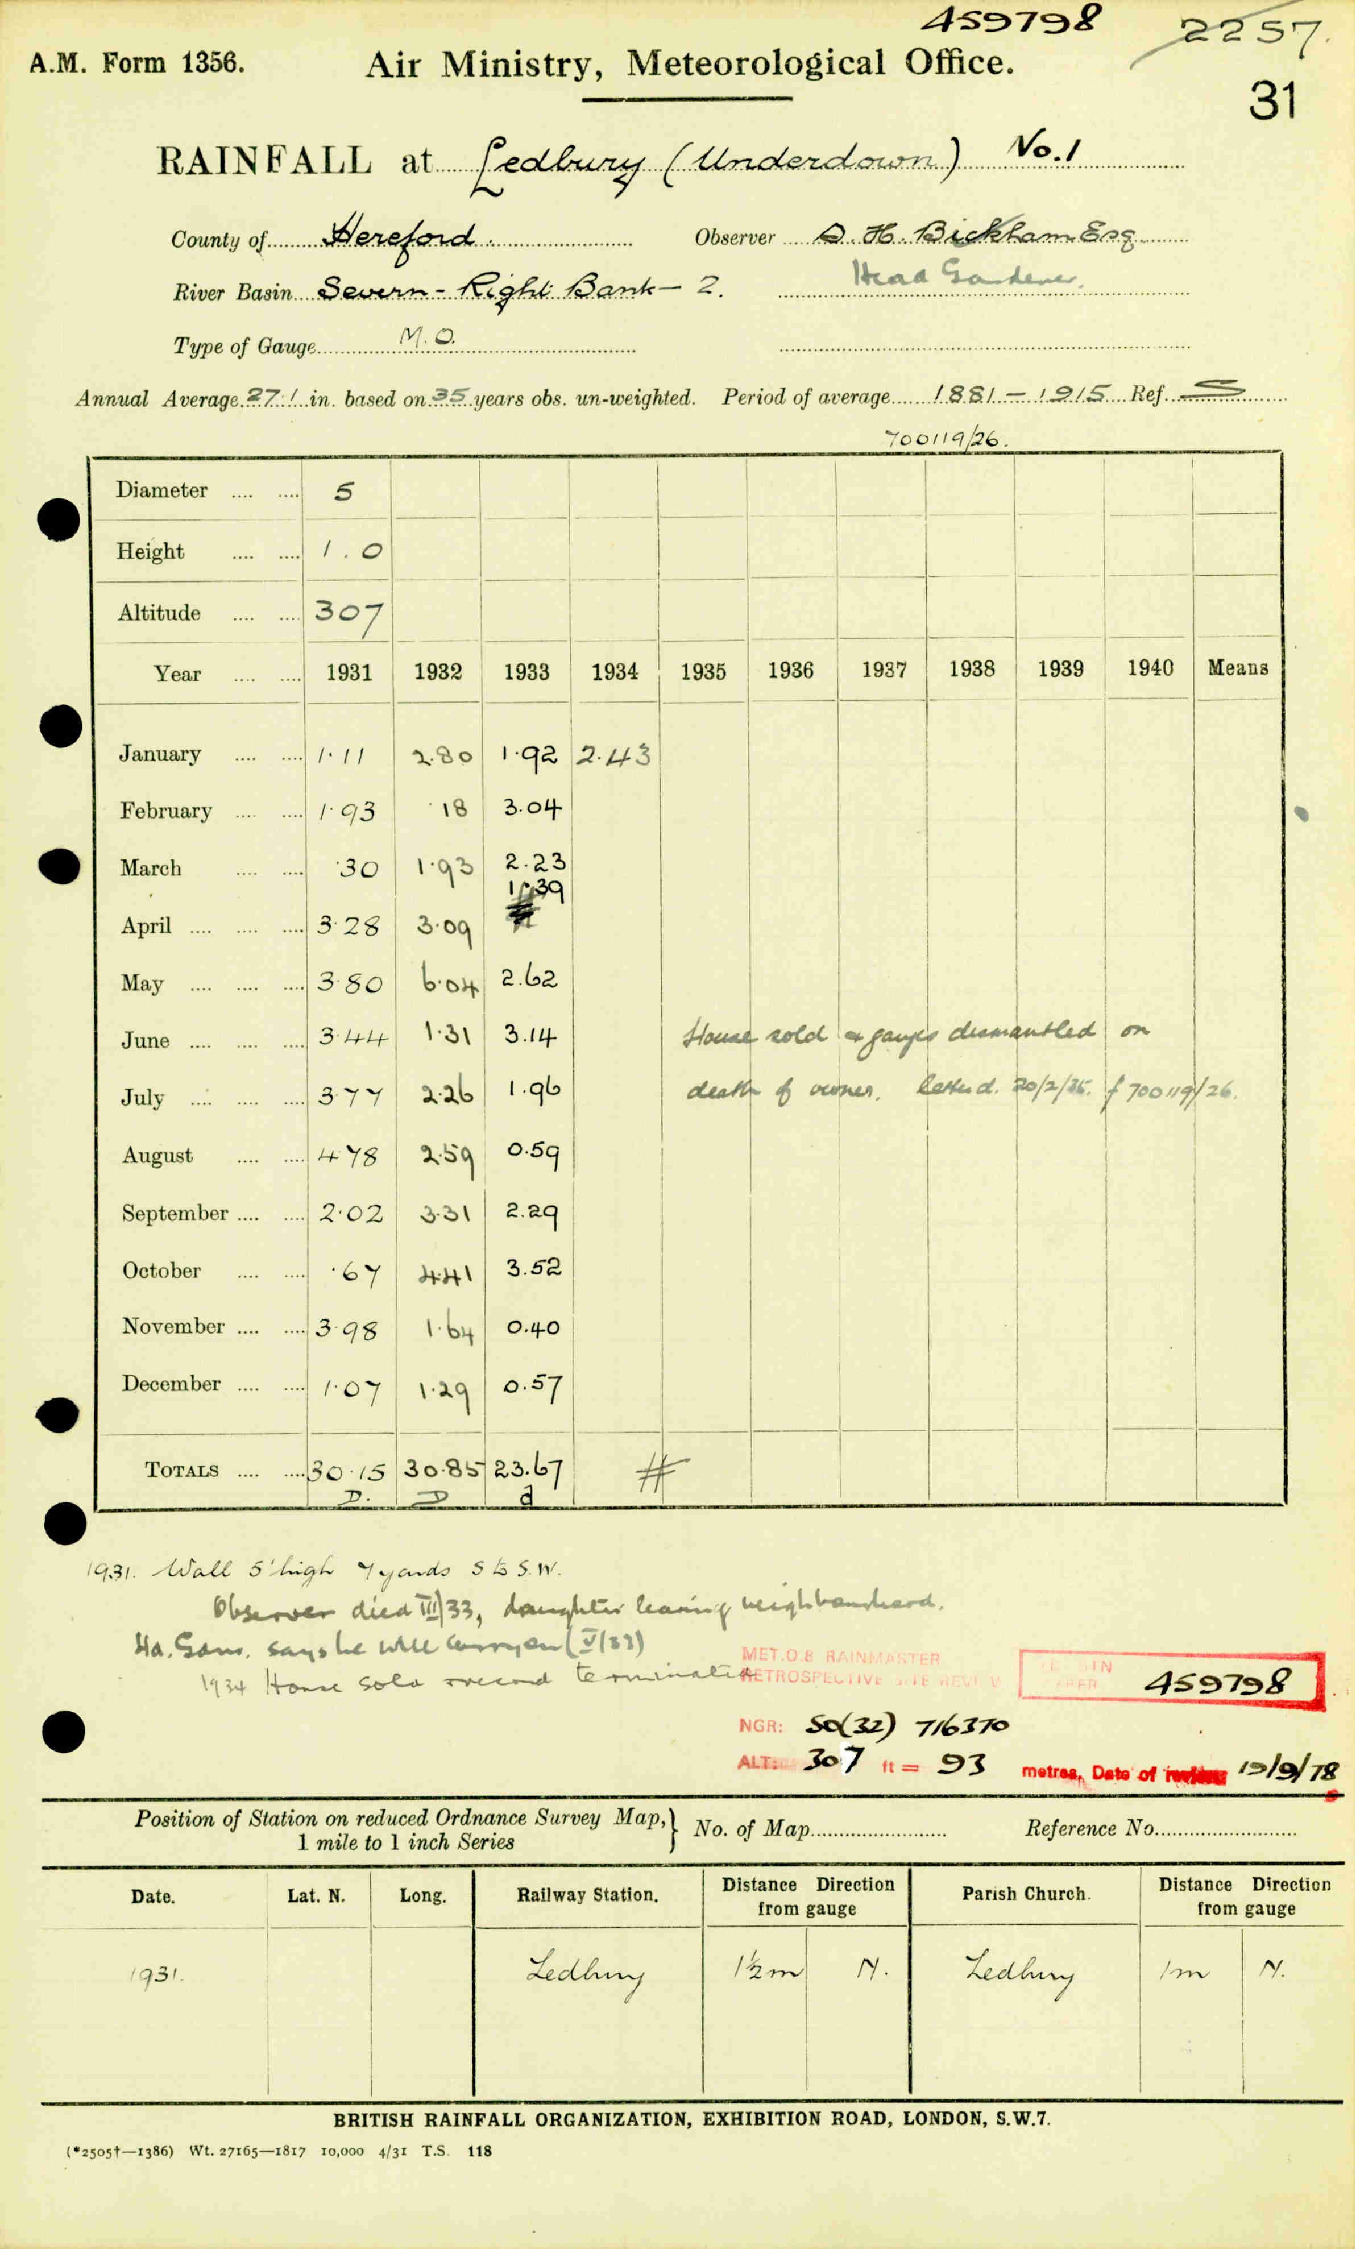 459798 2257.
A.M. Form 1356. Air Ministry, Meteorological Office.
31
RAINFALL at Ledbury (Underdown) No. 1
County of Hereford Observer S. H. Bickham Esq
River Basin Severn - Right Bank - 2. Head Gardener.
Type of Gauge M.O.
Annual Average 27.1 in. based on 35 years obs. un-weighted. Period of average 1881 - 1915 Ref. S
700119/26.
Diameter .... .... 5
Height .... .... 1.0
Altitude .... .... 307
Year .... .... 1931 1932 1933 1934 1935 1936 1937 1938 1939 1940 Means
January .... .... 1.11 2.80 1.92 2.43
February .... .... 1.93 .18 3.04
March .... .... .30 1.93 2.23
April .... .... .... 3.28 3.09 1.39
May .... .... .... 3.80 6.04 2.62
June .... .... .... 3.44 1.31 3.14 House sold & gauges dismantled on
July .... .... .... 3.77 2.26 1.96 death of owner. letter d. 20/2/35. f 700119/26.
August .... .... 4.78 2.59 0.59
September .... .... 2.02 3.31 2.29
October .... .... .67 4.41 3.52
November .... .... 3.98 1.64 0.40
December .... .... 1.07 1.29 0.57
TOTALS .... .... 30.15 30.85 23.67 #
D. D d
1931. Wall 5' high 7 yards S to S.W.
Observer died III/33, daughter leaving neighbourhood.
Ha. Gard. says he will carry on (V/33)
1934 House sold record terminated
MET.O.8 RAINMASTER
RETROSPECTIVE SITE REVIEW 459798
NGR: SO(32) 716370
ALT: 307 ft = 93 metres, Date of review 19/9/78
Position of Station on reduced Ordnance Survey Map, } No. of Map Reference No.
1 mile to 1 inch Series
Date. Lat. N. Long. Railway Station. Distance Direction from gauge Parish Church. Distance Direction from gauge
1931. Ledbury 1½m N. Ledbury 1m N.
BRITISH RAINFALL ORGANIZATION, EXHIBITION ROAD, LONDON, S.W.7.
(*2505†—1386) Wt. 27165—1817 10,000 4/31 T.S. 118